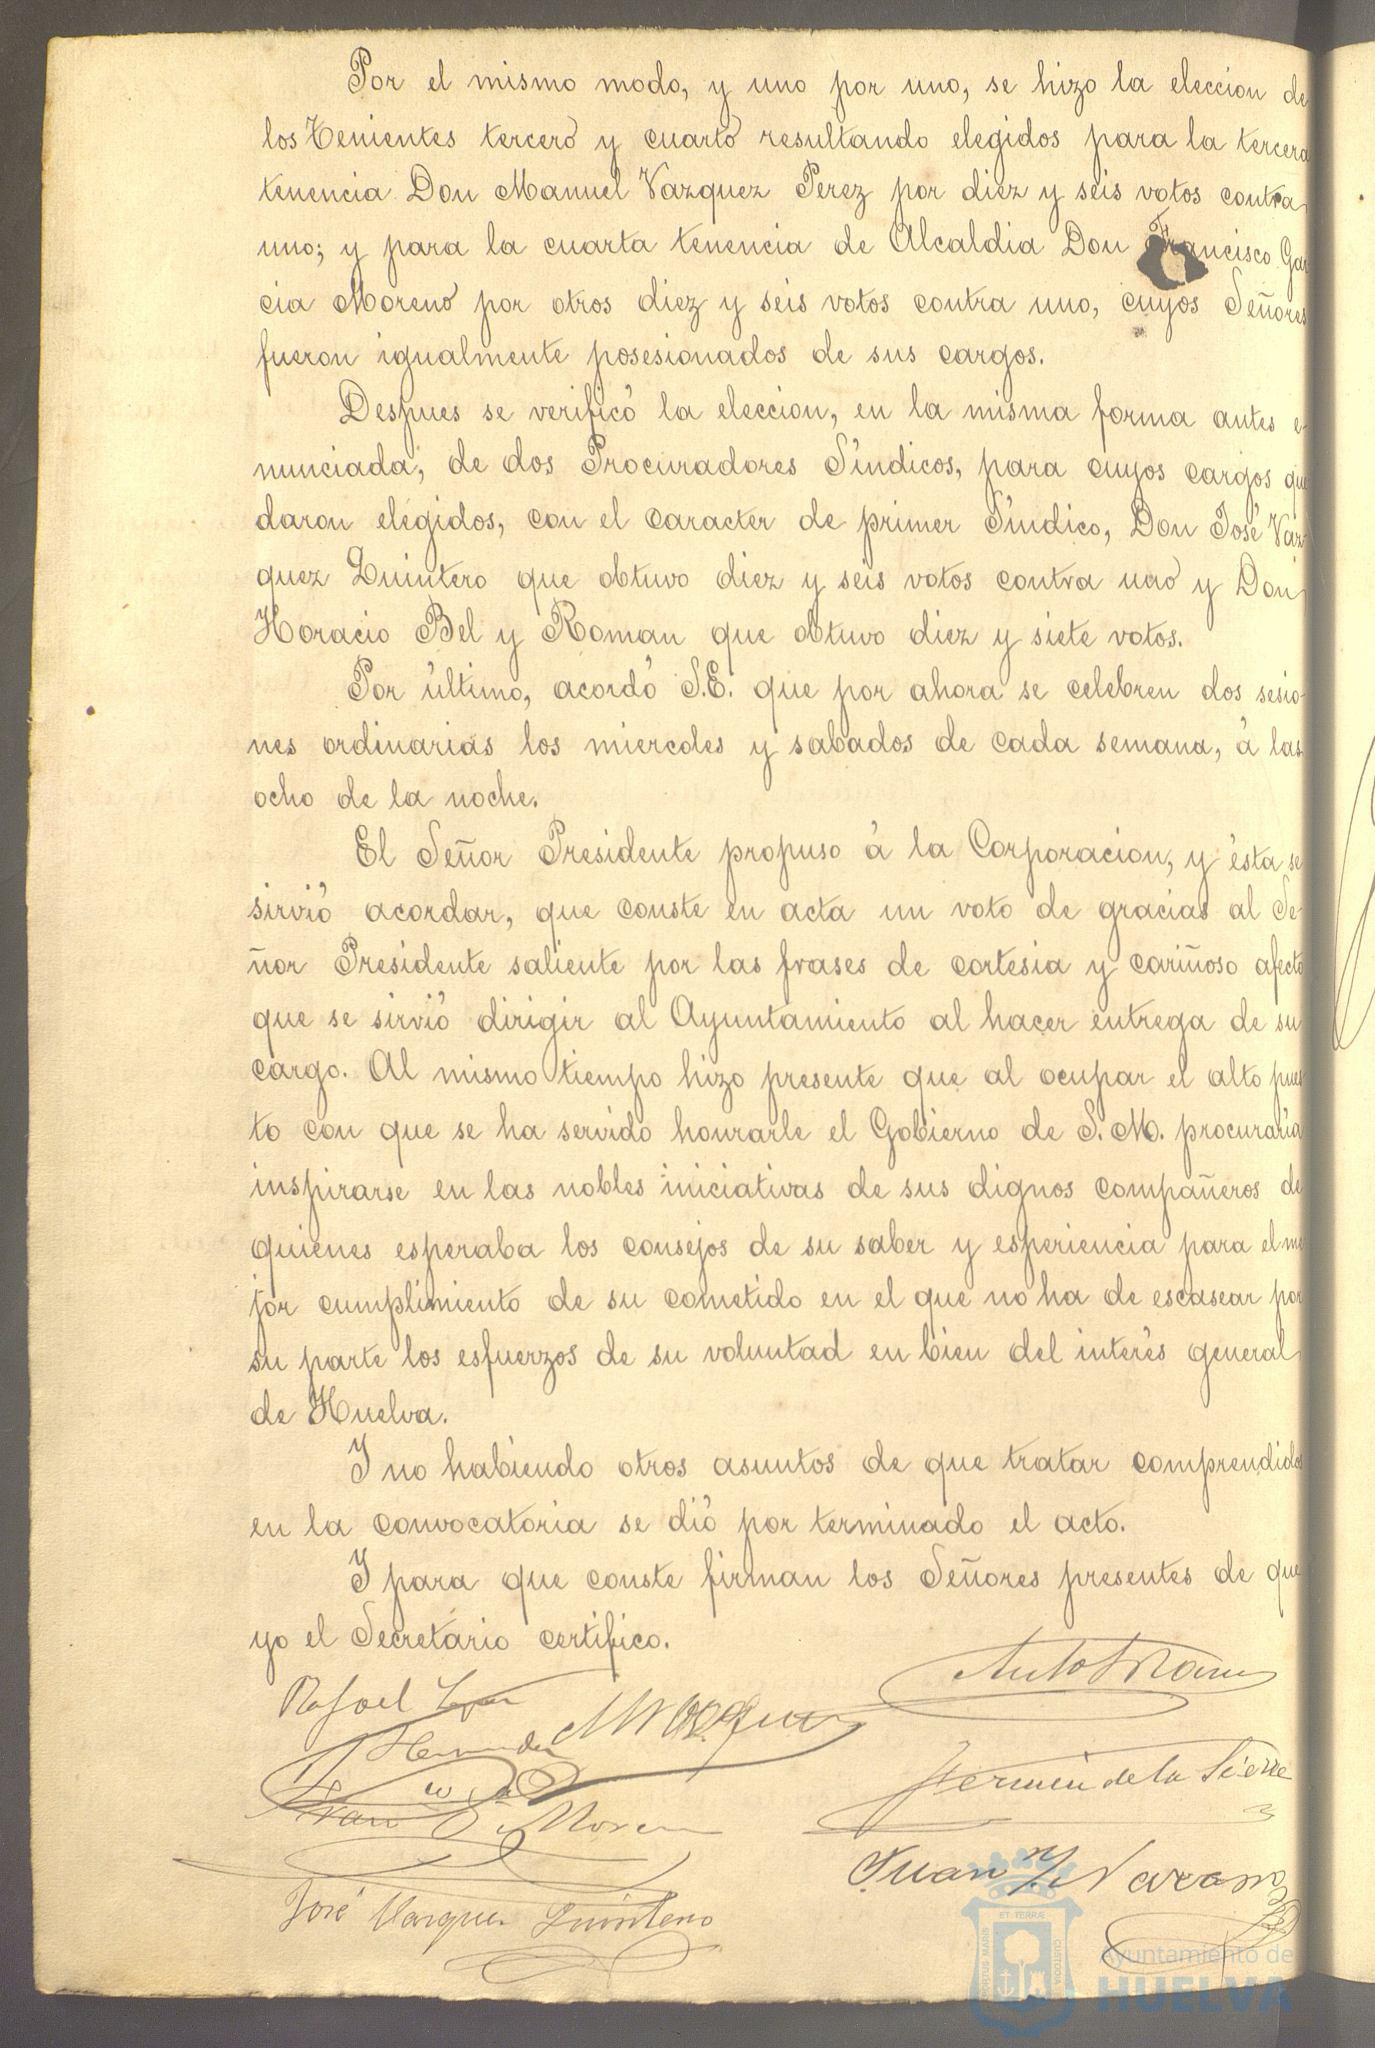 Por el mismo modo, y uno por uno, se hizo la eleccion de
los Tenientes tercero y cuarto resultando elegidos para la tercera
tenencia Don Manuel Vazquez Perez por diez y seis votos contra
uno; y para la cuarta tenencia de Alcaldia Don Francisco Gar
cia Moreno por otros diez y seis votos contra uno, cuyos Señores
fueron igualmente posesionados de sus cargos.
Despues se verificó la eleccion, en la misma forma antes e-
nunciada, de dos Procuradores Síndicos, para cuyos cargos que
daron elegidos, con el caracter de primer Síndico, Don José Váz-
quez Quintero que obtuvo diez y seis votos contra uno y Don
Horacio Bel y Roman que obtuvo diez y siete votos.
Por último, acordó S.E. que por ahora se celebren dos sesio-
nes ordinarias los miercoles y sabados de cada semana, á las
ocho de la noche.
El Señor Presidente propuso á la Corporacion, y ésta se
sirvió acordar, que conste en acta un voto de gracias al Se-
ñor Presidente saliente por las frases de cortesia y cariñoso afecto
que se sirvió dirigir al Ayuntamiento al hacer entrega de su
cargo. Al mismo tiempo hizo presente que al ocupar el alto pues
to con que se ha servido honrarle el Gobierno de S. M. procuraria
inspirarse en las nobles iniciativas de sus dignos compañeros de
quienes esperaba los consejos de su saber y esperiencia para el me
jor cumplimiento de su cometido en el que no ha de escasear por
su parte los esfuerzos de su voluntad en bien del interés general
de Huelva.
Y no habiendo otros asuntos de que tratar comprendidos
en la convocatoria se dió por terminado el acto.
Y para que conste firman los Señores presentes de que
yo el Secretario certifico.
Rafael Lopez
Hernandez
M Vazquez
Fermin de la Sierra
Fran Moreno
Juan Y Navarro
José Vazquez Quintero
Ayuntamiento de
HUELVA